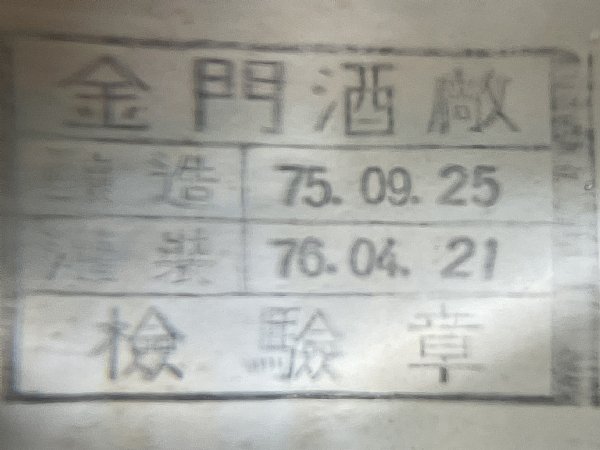 金門酒廠
造 75.09.25
裝 76.04.21
檢驗章